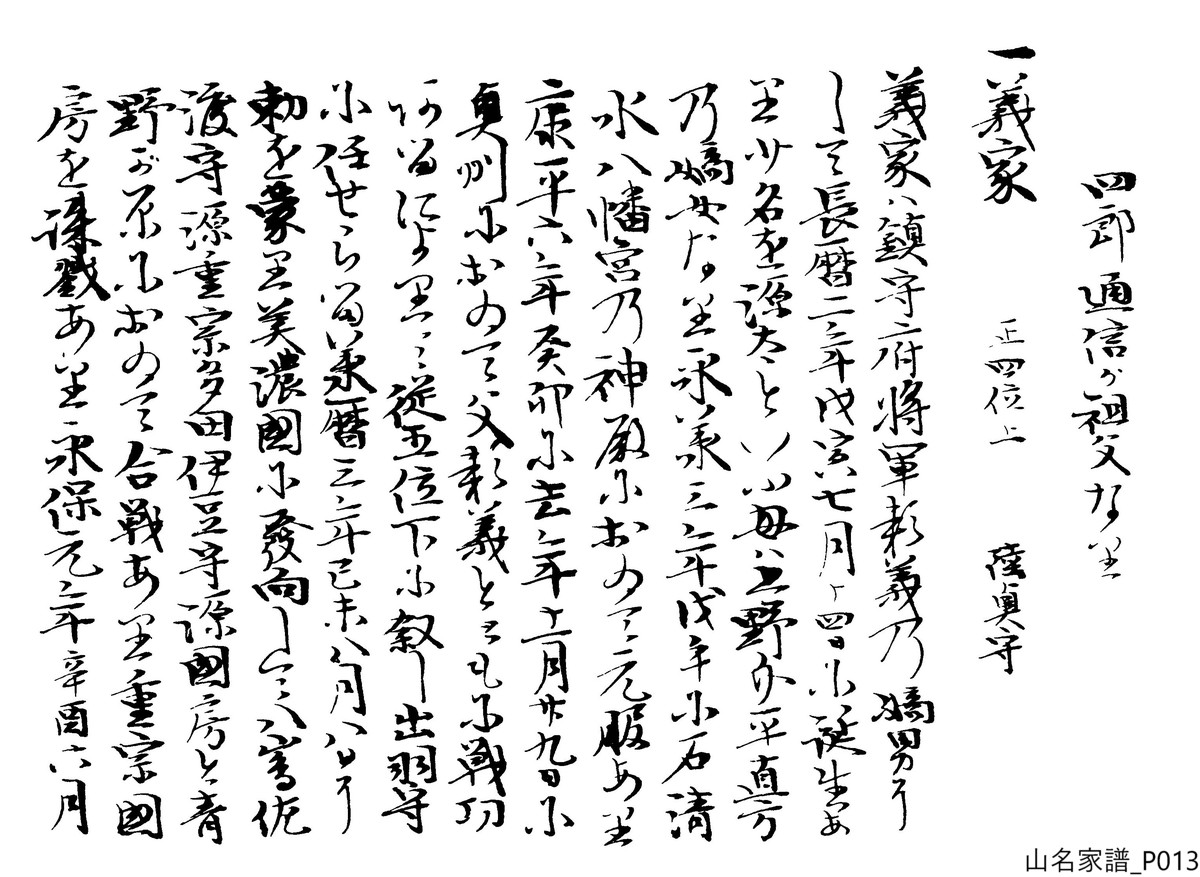 四郎通信か祖父なり
一義家 正四位上 陸奥守
義家ハ鎮守府将軍頼義乃嫡男に
して長暦二年戊寅七月十四日に誕生あ
り少名を源太といふ母ハ上野介平直方
乃嫡女なり永承三年戊子に石清
水八幡宮乃神殿におゐて元服あり
康平六年癸卯に去年十二月廿九日に
奥州におゐて父頼義とともに戦功
あるによりて従五位下に叙し出羽守
に任せらる承暦三年己未八月八日に
勅を蒙り美濃國に發向して八嶌佐
渡守源重宗多田伊豆守源國房と青
野か原におゐて合戦あり重宗國
房を誅戮あり永保元年辛酉六月
山名家譜_P013